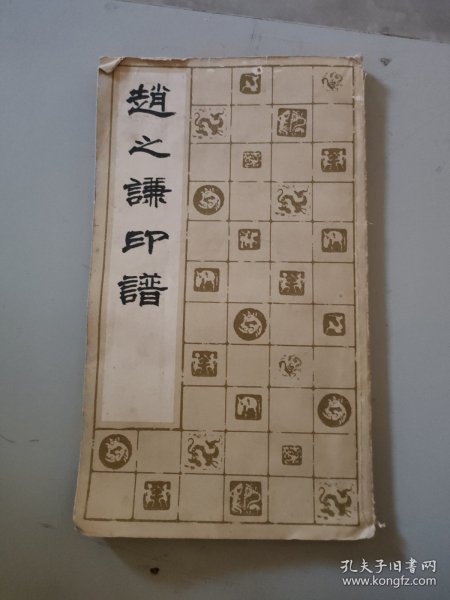 趙之謙印譜
孔夫子旧书网
www.kongfz.com